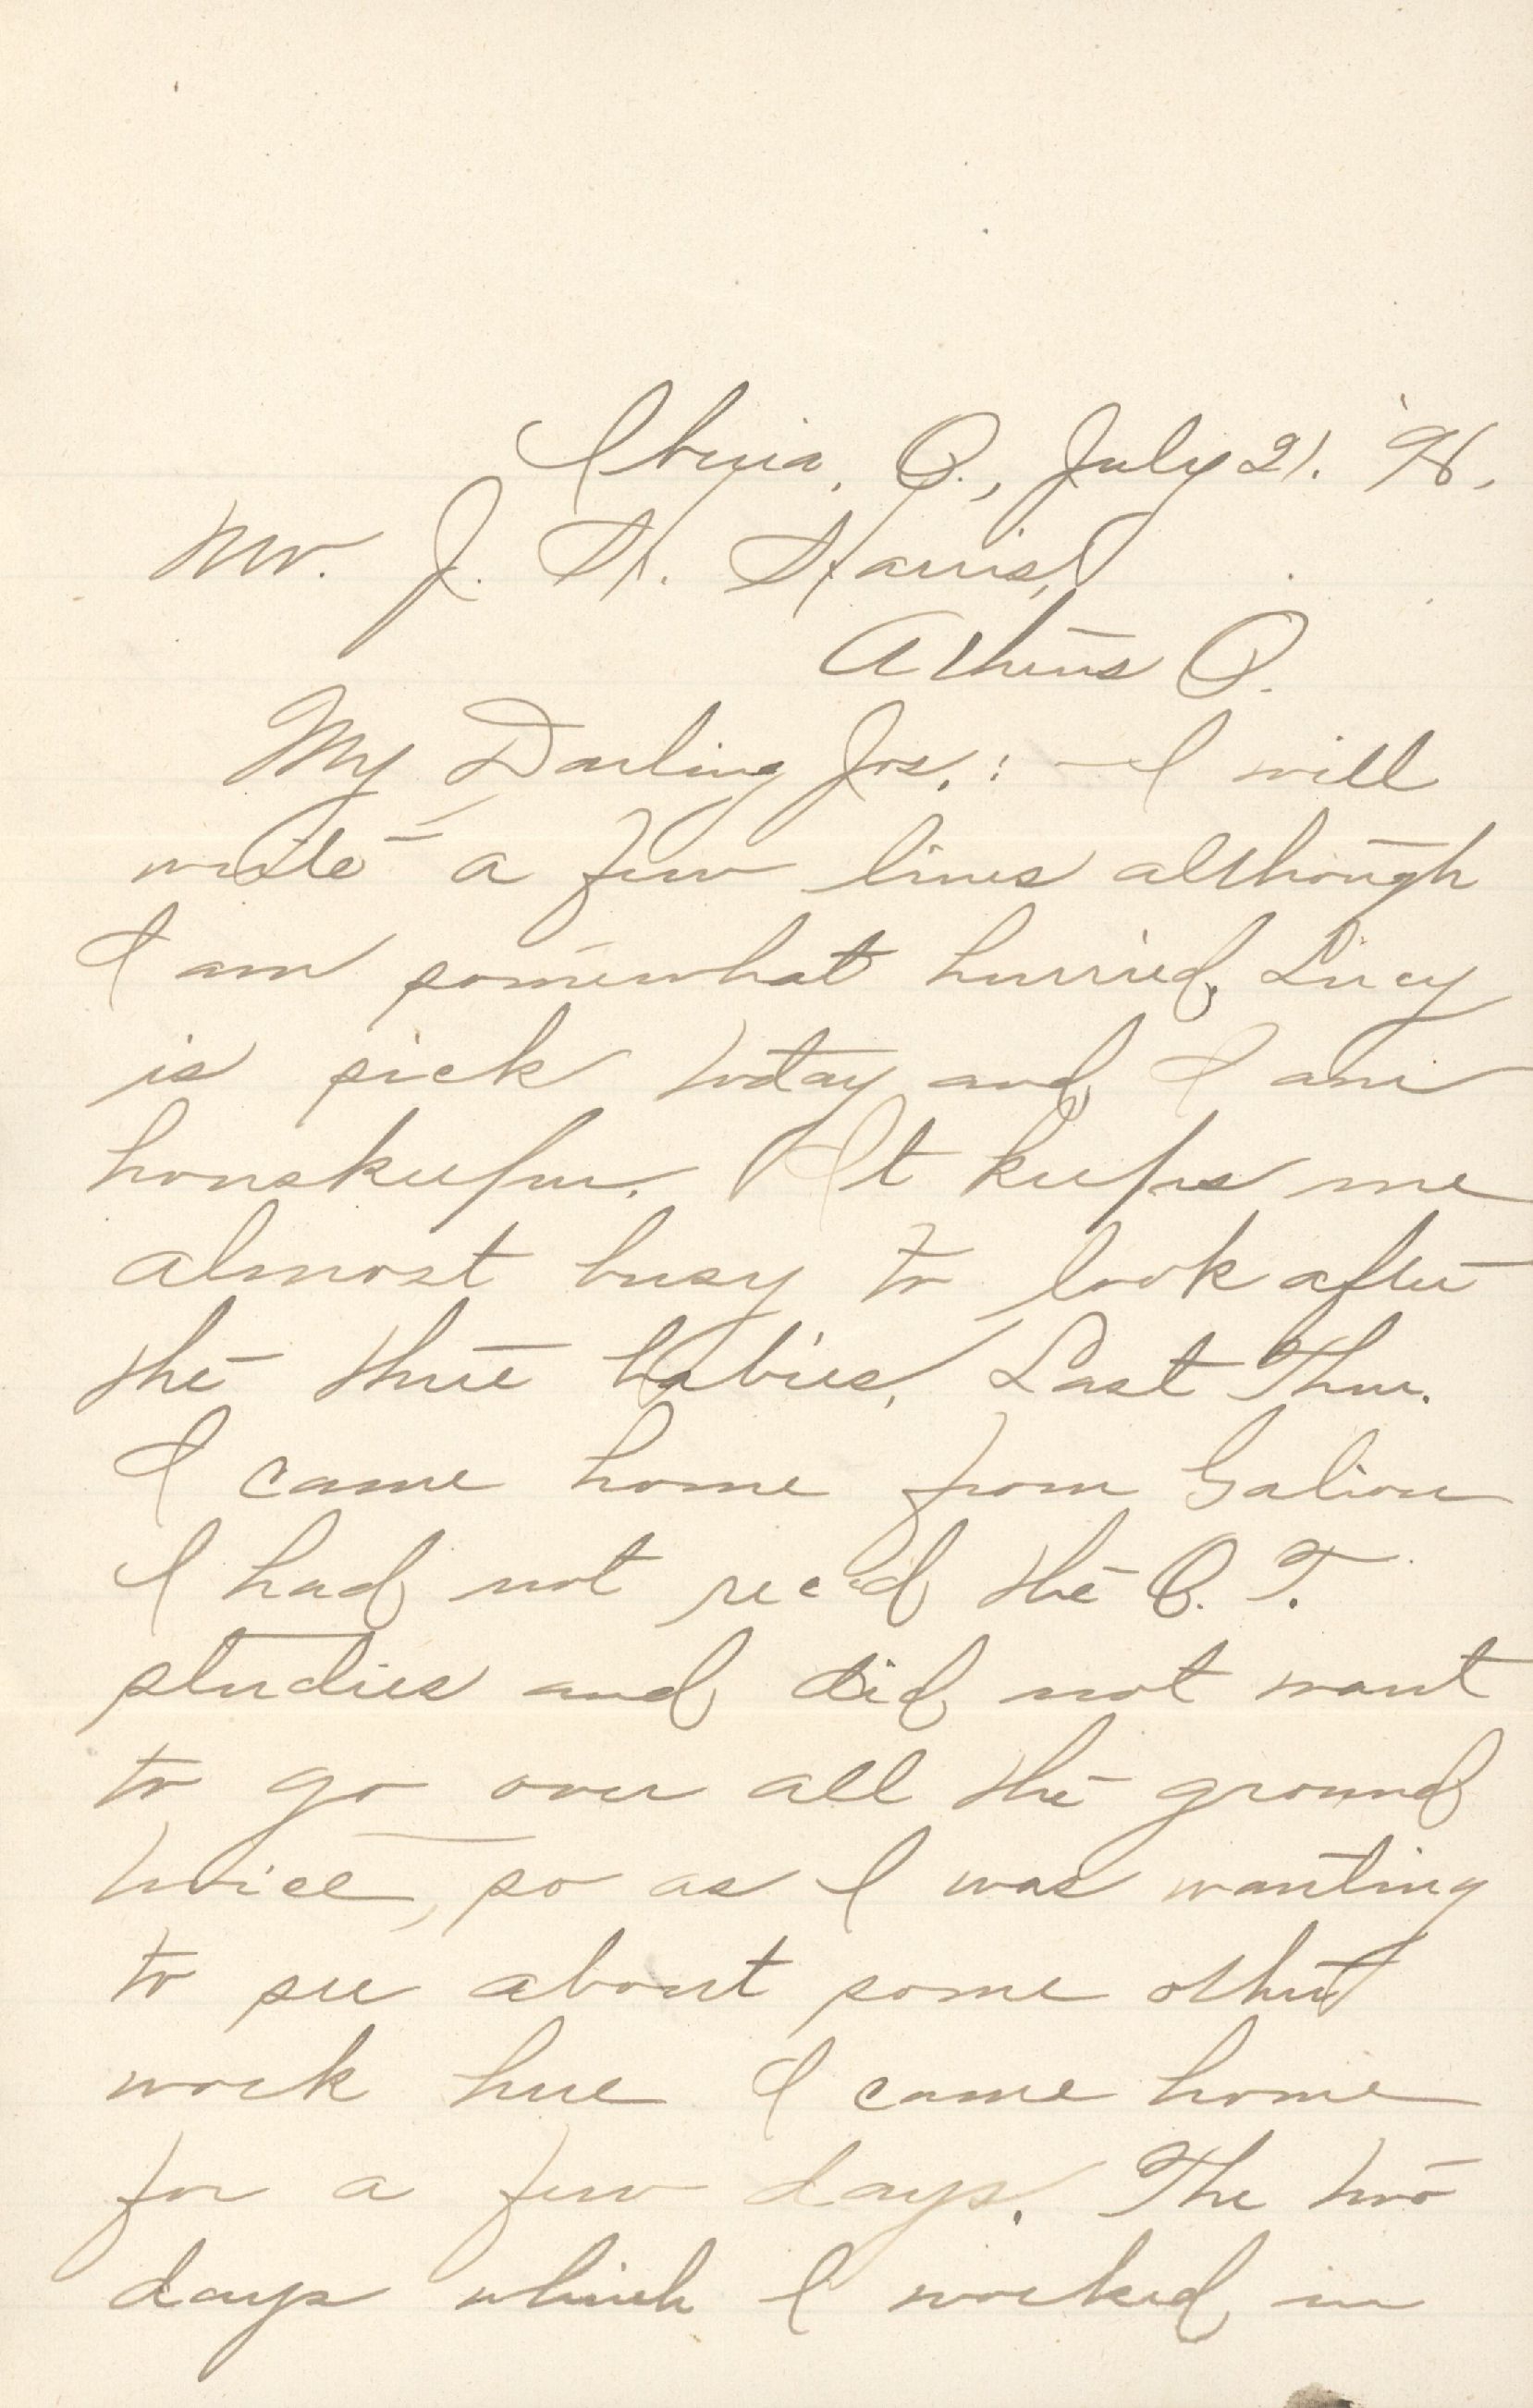 Iberia, O., July 21. '96.
Mr. J. H. Harris,
Athens O.
My Darling Jos.: —I will
write a few lines although
I am somewhat hurried, Lucy
is sick today and I am
houskeeper. It keeps me
almost busy to look after
the three babies. Last Thur.
I came home from Galion
I had not rec'd the O. T.
studies and did not want
to go over all the ground
twice, so as I was wanting
to see about some other
work here I came home
for a few days. The two
days which I worked in